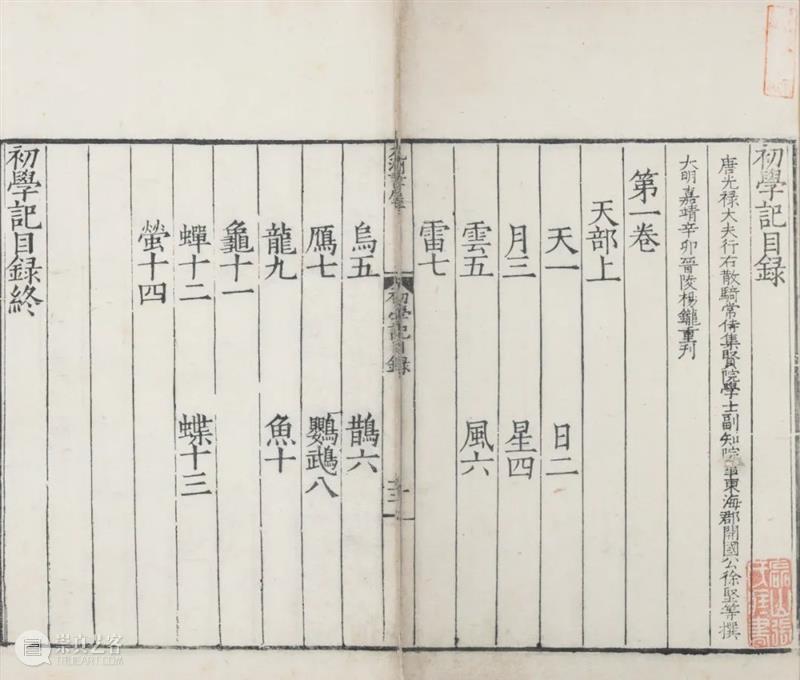 初學記目録
唐光禄大夫行右散騎常侍集賢院學士副知院事東海郡開國公徐堅等撰
大明嘉靖辛卯晉陵楊鑨重刋
第一卷
天部上
天一 日二
月三 星四
雲五 風六
雷七
初學記目録
烏五 鵲六
鴈七 鸚鵡八
龍九 魚十
龜十一
蟬十二 蝶十三
螢十四
初學記目録終
崇真艺客